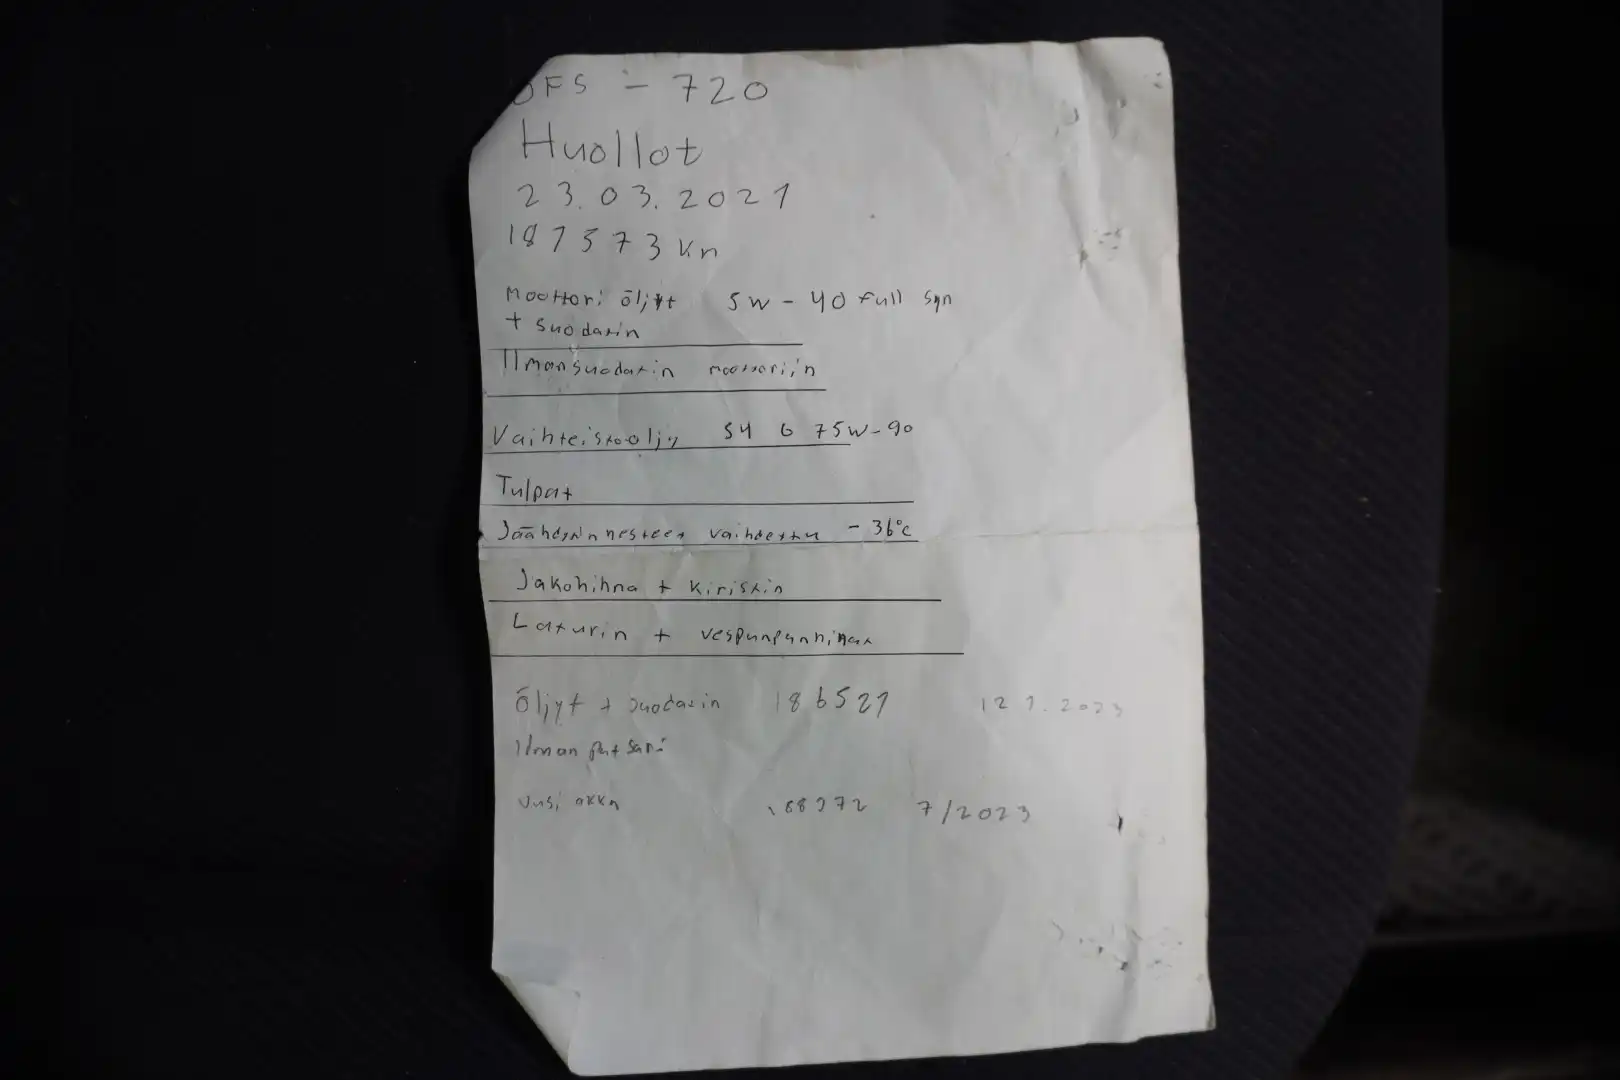 OFS - 720
Huollot
23.03.2021
181573 km
Moottori öljyt 5W-40 full syn
+ suodatin
Ilmansuodatin moottoriin
Vaihteistoöljy 75W-90
Tulpat
Jäähdytinnesteet vaihdettu -36°C
Jakohihna + kiristin
Laturin +
Öljyt + suodatin 186521 12.1.2023
Ilman putsari
Uusi akku 188972 7/2023